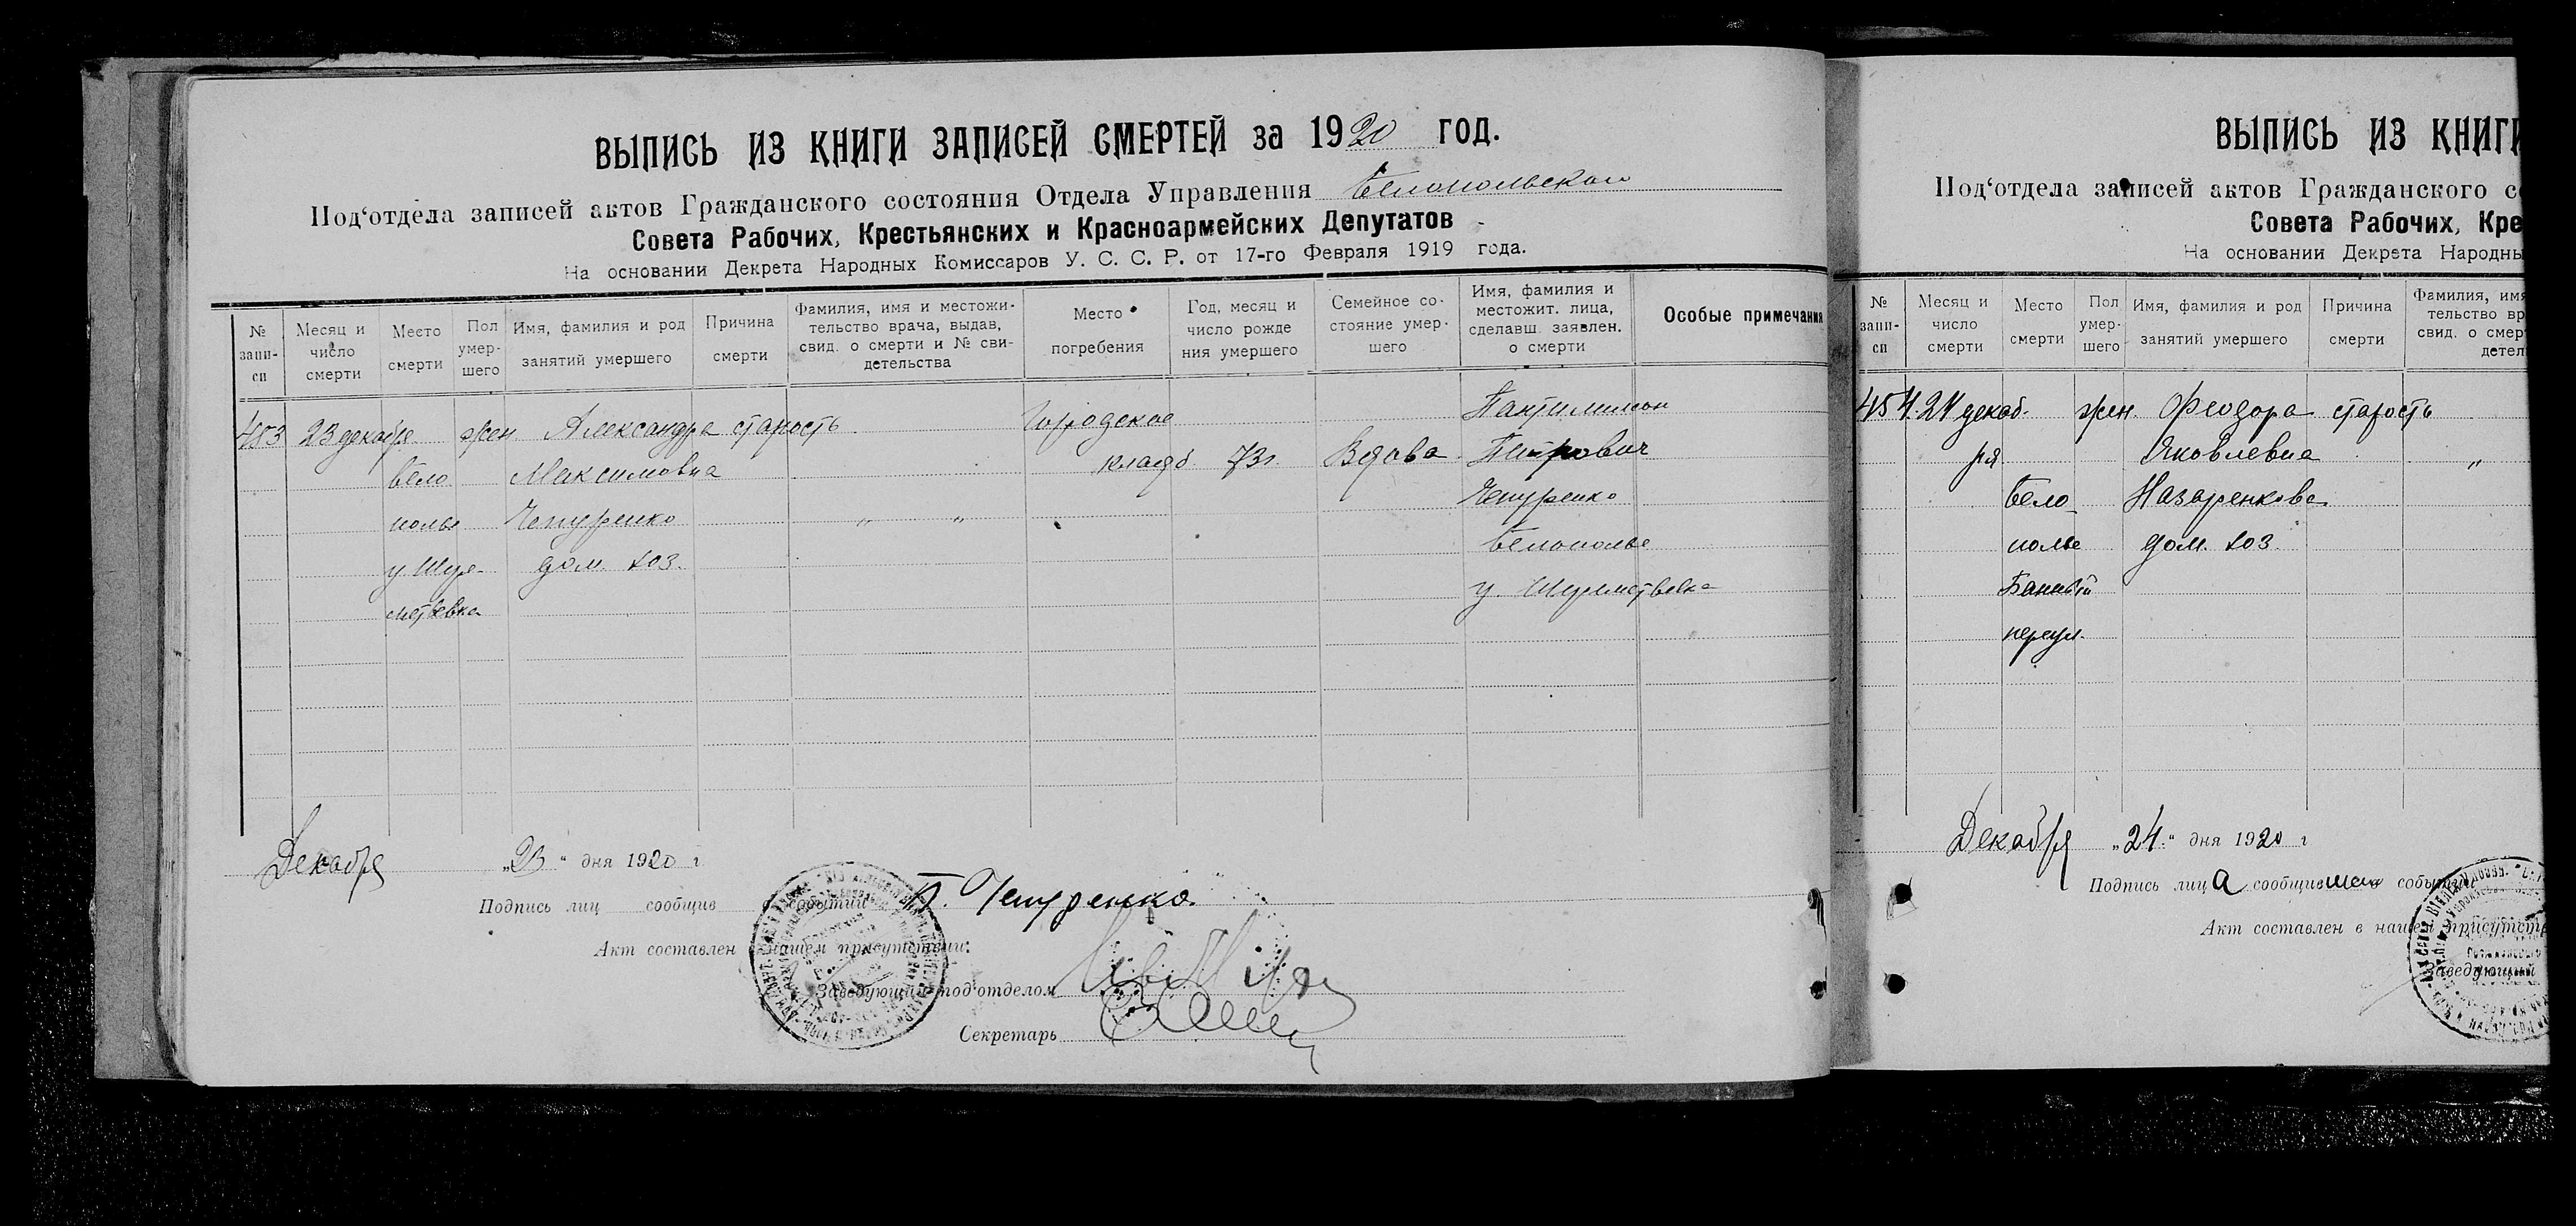 ВЫПИСЬ ИЗ КНИГИ ЗАПИСЕЙ СМЕРТЕЙ за 1920 год.
Под‘отдела записей актов Гражданского состояния Отдела Управления Белопольской
Совета Рабочих, Крестьянских и Красноармейских Депутатов
На основании Декрета Народных Комиссаров У. С. С. Р. от 17-го Февраля 1919 года.
№ запи-си
Месяц и число смерти
Место смерти
Пол умер-шего
Имя, фамилия и род занятий умершего
Причина смерти
Фамилия, имя и местожи-тельство врача, выдав, свид. о смерти и № сви-детельства
Место погребения
Год, месяц и число рожде ния умершего
Семейное со-стояние умер-шего
Имя, фамилия и местожит. лица, сделавш. заявлен. о смерти
Особые примечания
453 23 декабря жен Александра старость Городское Пантилимон
Бело Максимовна кладб. 73г. Вдова Петрович
полье Чепуренко „ „ Чепуренко
у. Шере- дом. хоз. Белополье
метьевка у. Шереметьевка
Декабря „23“ дня 1920 г
Подпись лиц сообщив событии П. Чепуренко
Акт составлен в нашем присутствии:
Заведующий под‘отделом
Секретарь
ВЫПИСЬ ИЗ КНИГИ
Под‘отдела записей актов Гражданского со
Совета Рабочих, Кре
На основании Декрета Народны
№ запи-си
Месяц и число смерти
Место смерти
Пол умер-шего
Имя, фамилия и род занятий умершего
Причина смерти
Фамилия, имя тельство вр свид. о смер детел
454. 24 декаб. жен. Феодора старость
ря Яковлевна „
Бело- Назаренкова
полье дом. хоз.
Банный
переул.
Декабря „24.“ дня 1920 г
Подпись лица сообщившего событии
Акт составлен в нашем присутств
Заведующий